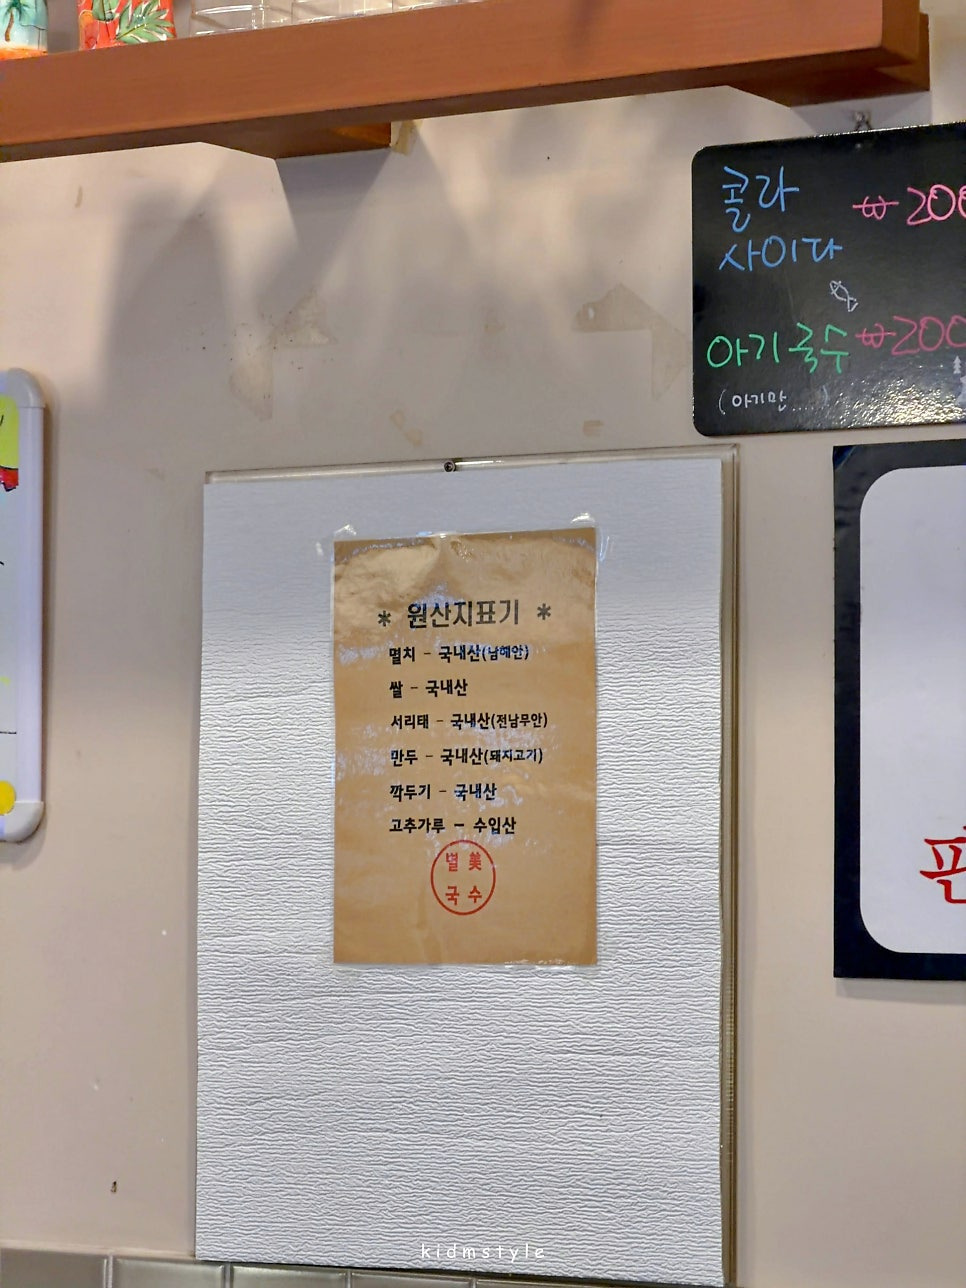 콜라
사이다
₩200
아기국수 ₩200
(아기만
* 원산지표기 *
멸치 - 국내산(남해안)
쌀 - 국내산
서리태 - 국내산(전남무안)
만두 - 국내산(돼지고기)
깍두기 - 국내산
고추가루 - 수입산
별美
국수
kidmstyle